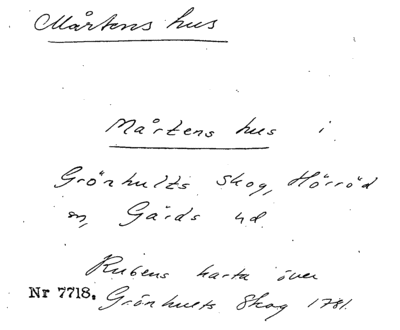 Mårtens hus
Mårtens hus i
Grönhults skog, Hörröd
sn, Gärds hd.
Rubens karta över
Nr 7718. Grönhults Skog 1781.